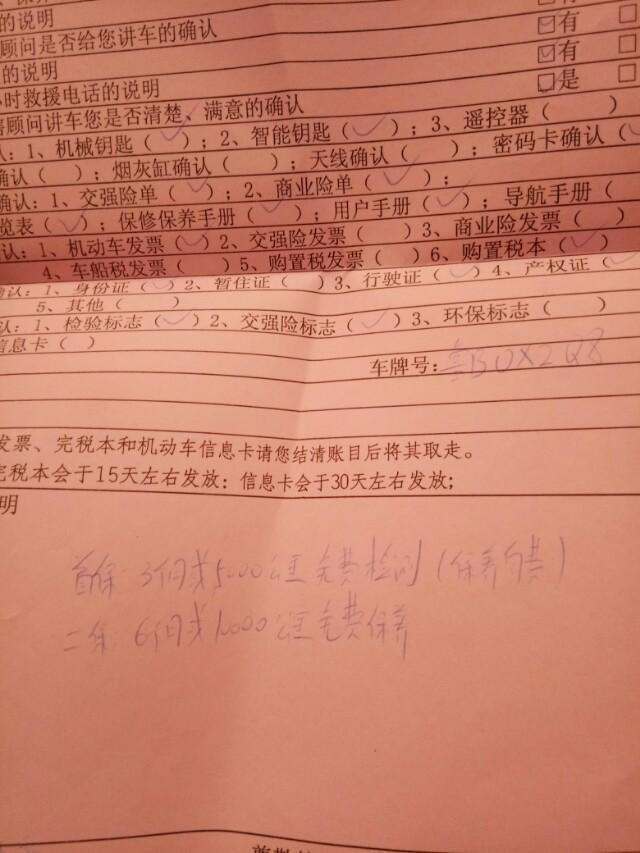 的说明 有
顾问是否给您讲车的确认 有
的说明 有
时救援电话的说明 是
顾问讲车您是否清楚、满意的确认
认：1、机械钥匙（✓）；2、智能钥匙（✓）；3、遥控器（ ）
确认（ ）；烟灰缸确认（ ）；天线确认（ ）；密码卡确认（✓
确认：1、交强险单（✓）；2、商业险单（✓）；
览表（✓）；保修保养手册（✓）；用户手册（✓）；导航手册（
认：1、机动车发票（✓）2、交强险发票（ ）3、商业险发票（
4、车船税发票（ ）5、购置税发票（ ）6、购置税本（✓）
确认：1、身份证（✓）2、暂住证（ ）3、行驶证（✓）4、产权证（✓
5、其他（ ）
认：1、检验标志（✓）2、交强险标志（✓）3、环保标志（ ）
信息卡（ ）
车牌号：粤B0X2Q8
发票、完税本和机动车信息卡请您结清账目后将其取走。
完税本会于15天左右发放：信息卡会于30天左右发放；
明
首保：3个月或5000公里 免费检测（保养自费）
二保：6个月或10000公里 免费保养